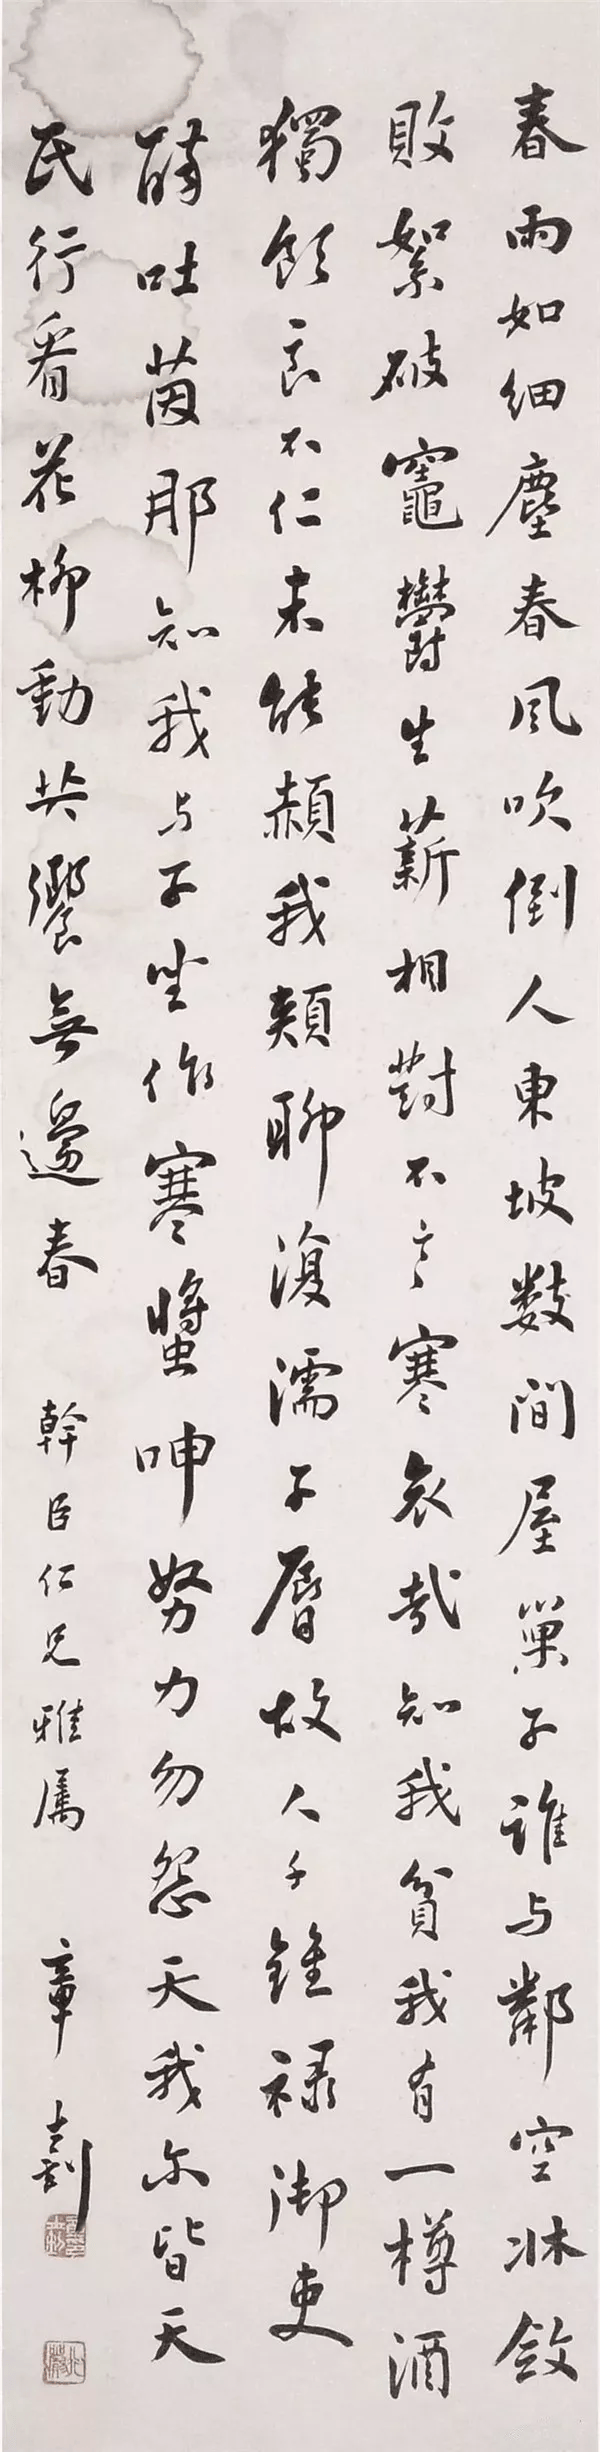 春雨如細塵春風吹倒人東坡數間屋巢子誰与鄰空牀斂
敗絮破竈鬱生薪相對不言寒哀哉知我貧我有一樽酒
獨飲良不仁未能赬我頰聊復濡子脣故人千鍾祿御吏
醉吐茵那知我与子坐作寒螿呻努力勿怨天我尔皆天
民行看花柳動共饗無邊春 幹臣仁兄雅屬 章士釗